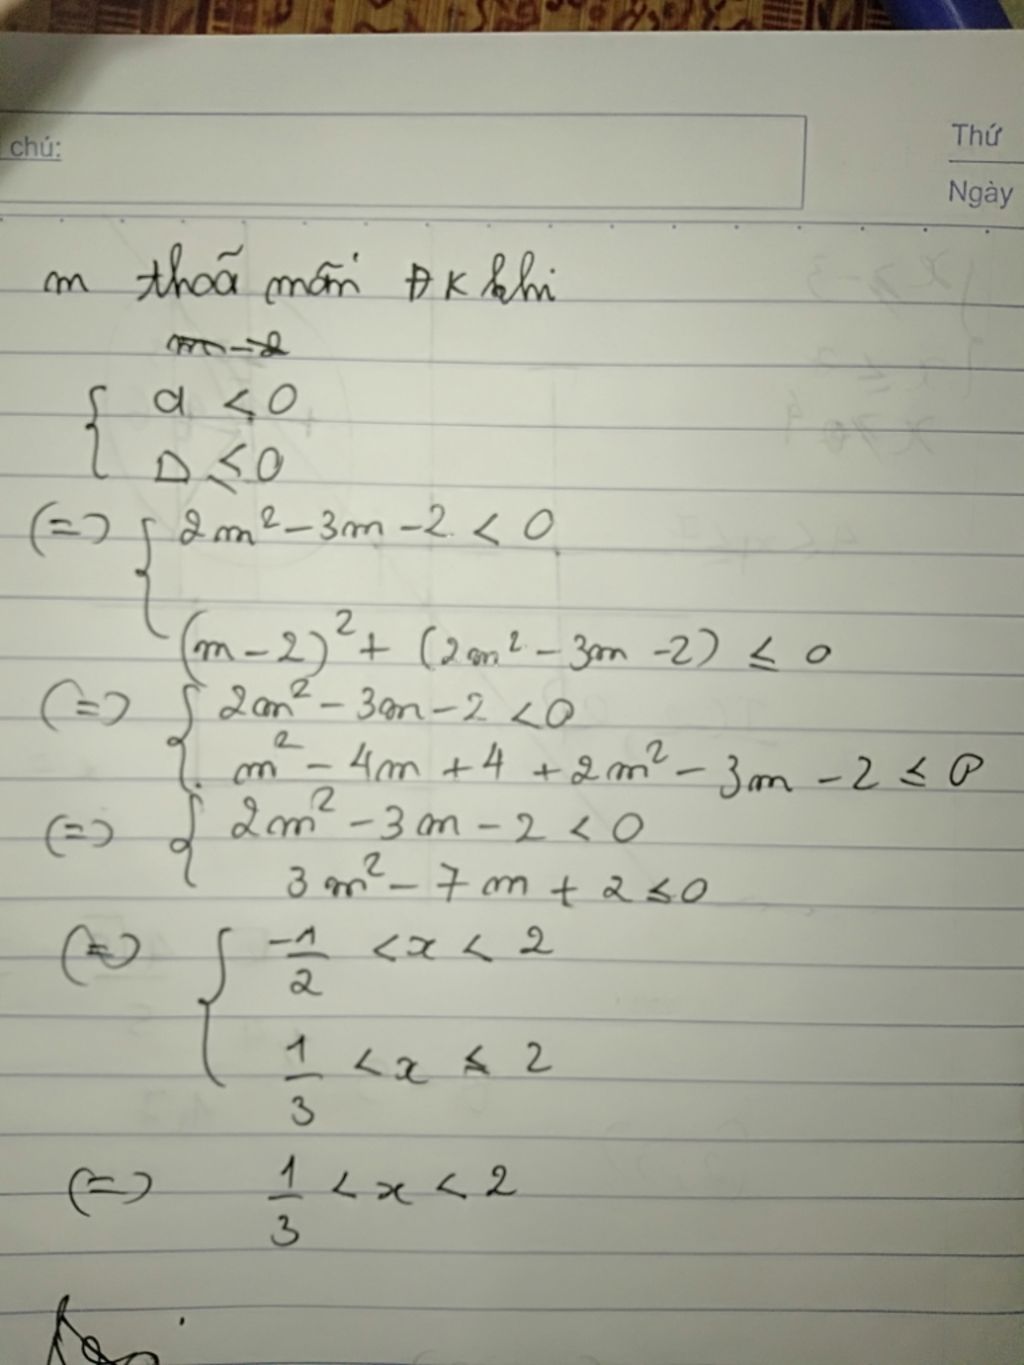 chú:
Thứ
Ngày
m thoã mãn ĐK khi
m-2
{ a < 0
Δ ≤ 0
(=) { 2m² - 3m - 2 < 0
(m - 2)² + (2m² - 3m - 2) ≤ 0
(=) { 2m² - 3m - 2 < 0
m² - 4m + 4 + 2m² - 3m - 2 ≤ 0
(=) { 2m² - 3m - 2 < 0
3m² - 7m + 2 ≤ 0
(=) { -1/2 < x < 2
1/3 < x ≤ 2
(=) 1/3 < x < 2